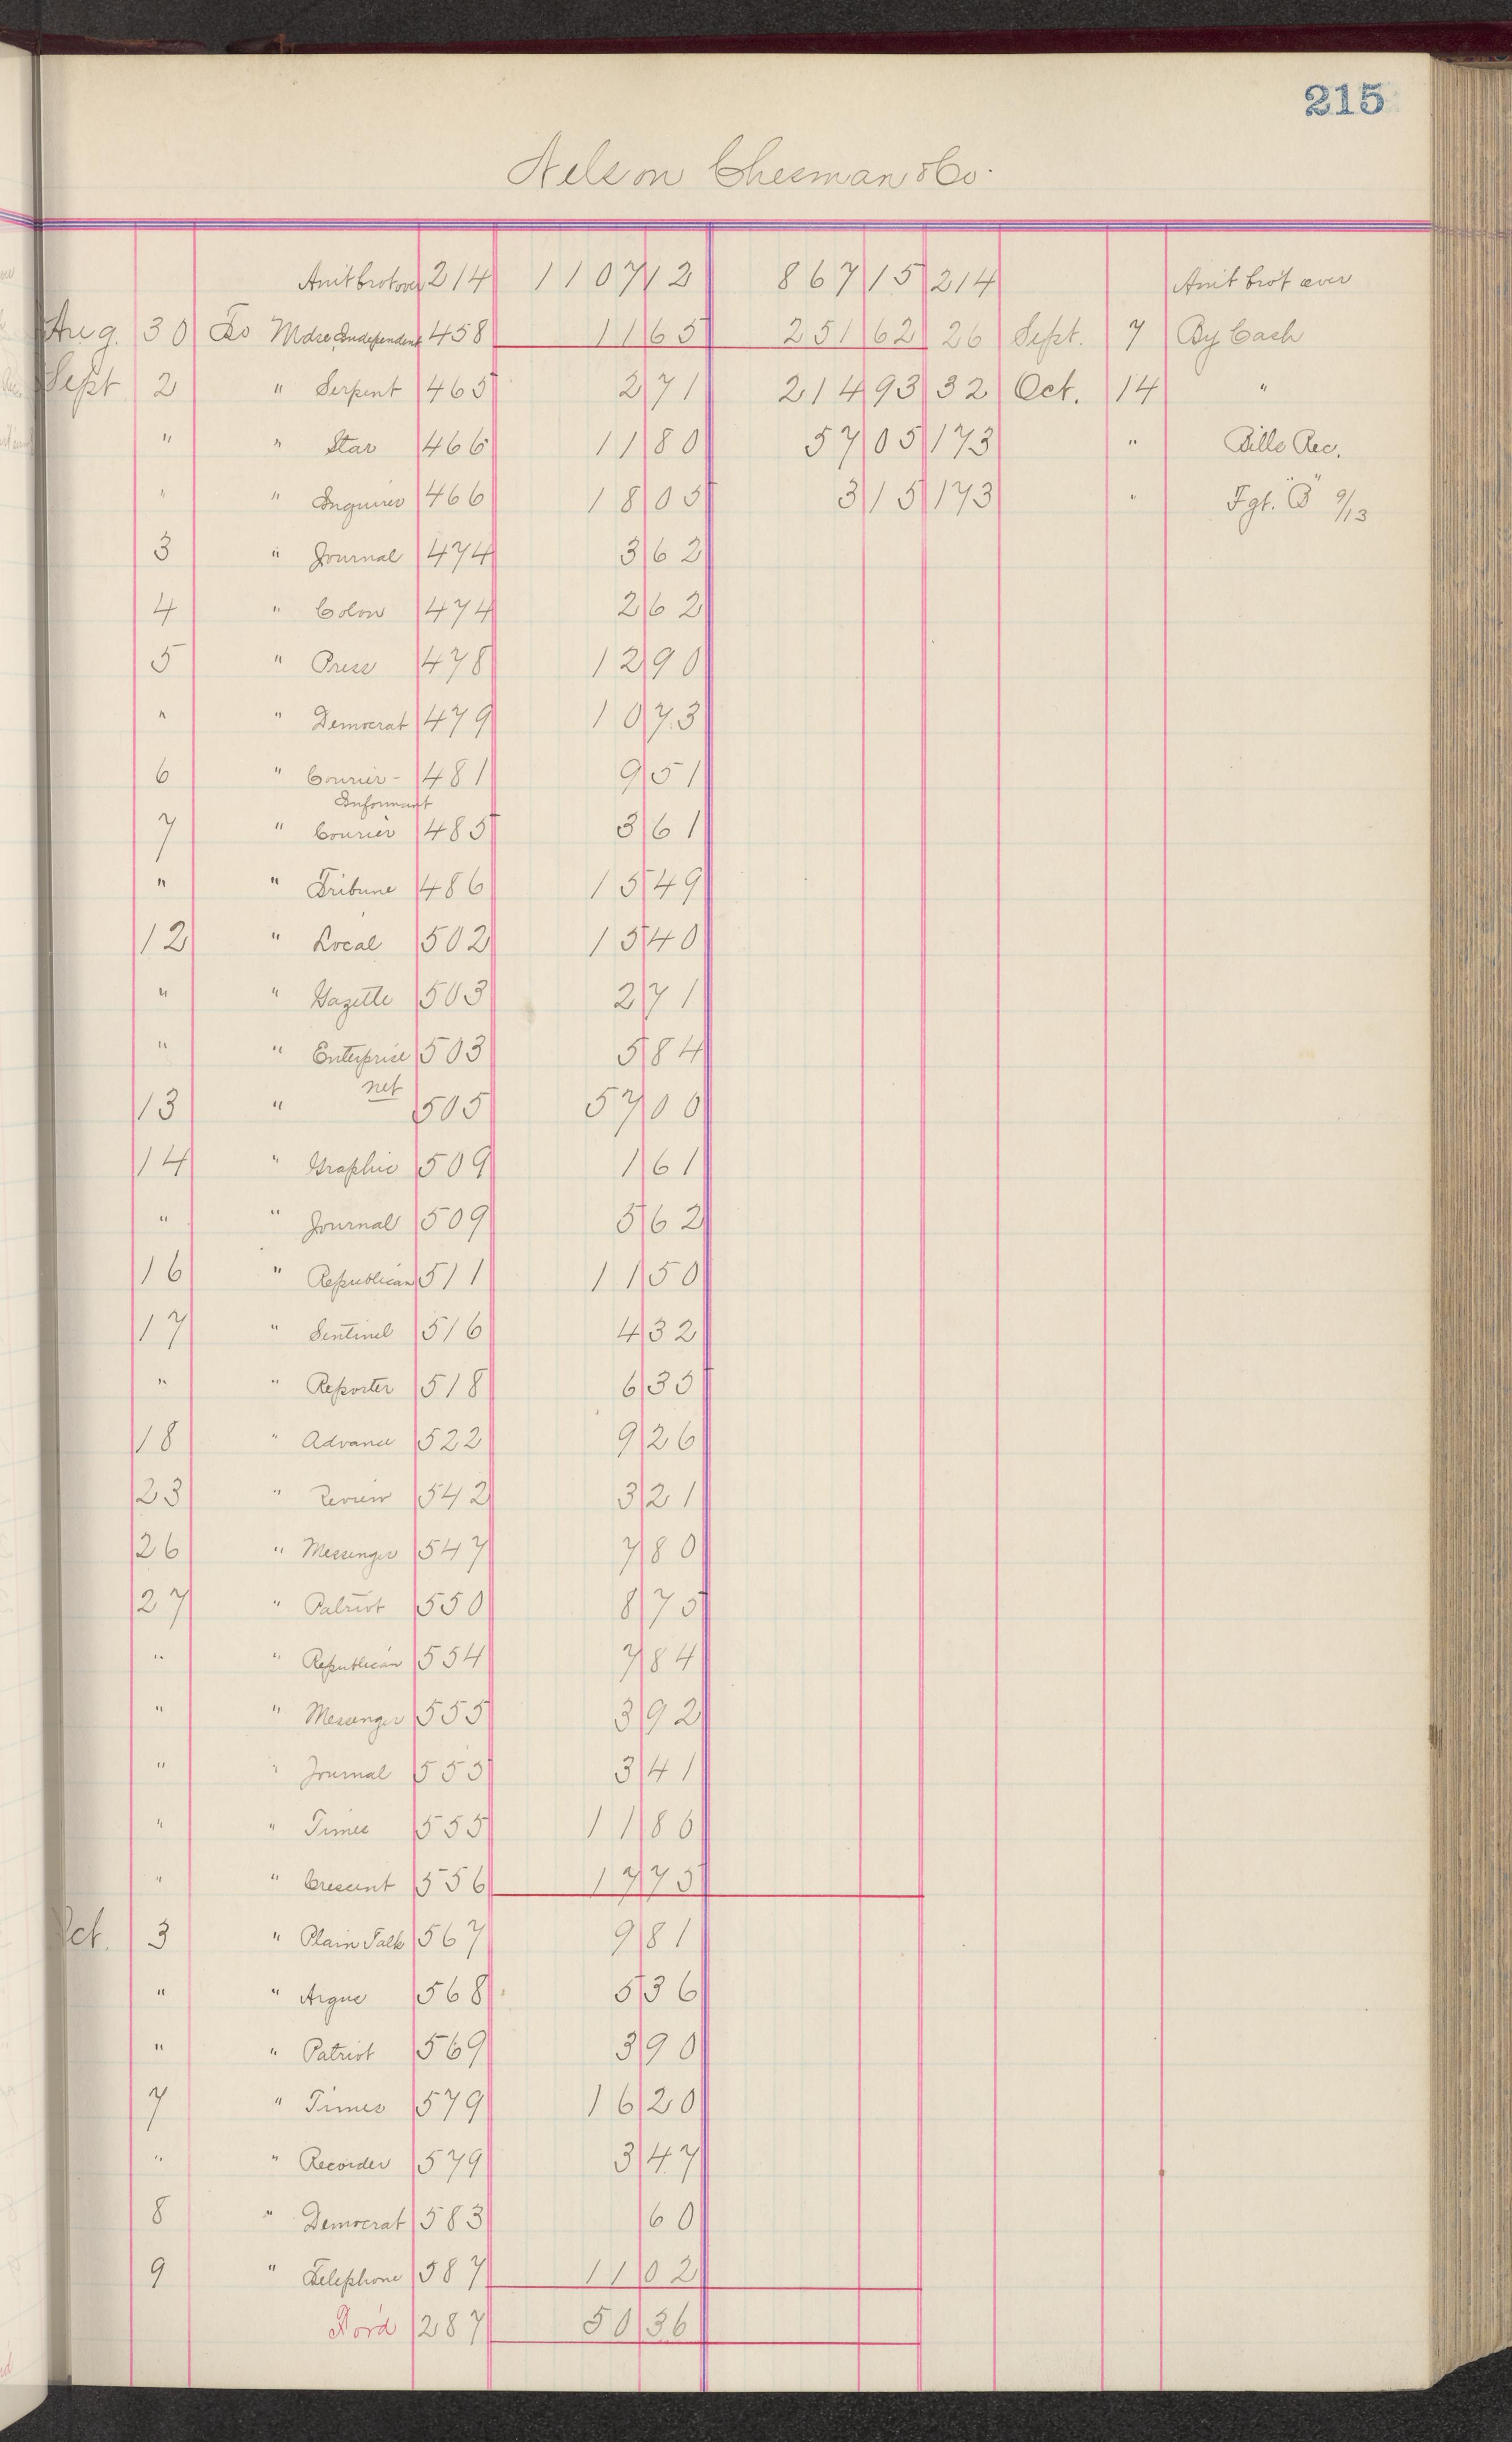 215
Nelson Chesman & Co.
Amt brot over 214 1107 12 867 15 214 Amt brot over
Aug. 30 To Mdse Independent 458 11 65 251 62 26 Sept. 7 By Cash
Sept 2 " Serpent 465 2 71 214 93 32 Oct. 14 "
" " Star 466 11 80 57 05 173 " Bills Rec.
" " Inquirer 466 18 05 3 15 173 " Fgt. "B" 9/13
3 " Journal 474 3 62
4 " Colon 474 2 62
5 " Press 478 12 90
" " Democrat 479 10 73
6 " Courier - 481 9 51
Informant
7 " Courier 485 3 61
" " Tribune 486 15 49
12 " Local 502 15 40
" " Gazette 503 2 71
" " Enterprise 503 5 84
13 " net 505 57 00
14 " Graphic 509 1 61
" " Journal 509 5 62
16 " Republican 511 11 50
17 " Sentinel 516 4 32
" " Reporter 518 6 35
18 " Advance 522 9 26
23 " Review 542 3 21
26 " Messenger 547 7 80
27 " Patriot 550 8 75
" " Republican 554 7 84
" " Messenger 555 3 92
" " Journal 555 3 41
" " Times 555 11 86
" " Crescent 556 17 75
Oct. 3 " Plain Talk 567 9 81
" " Argus 568 5 36
" " Patriot 569 3 90
7 " Times 579 16 20
" " Recorder 579 3 47
8 " Democrat 583 60
9 " Telephone 587 11 02
For'd 287 50 36